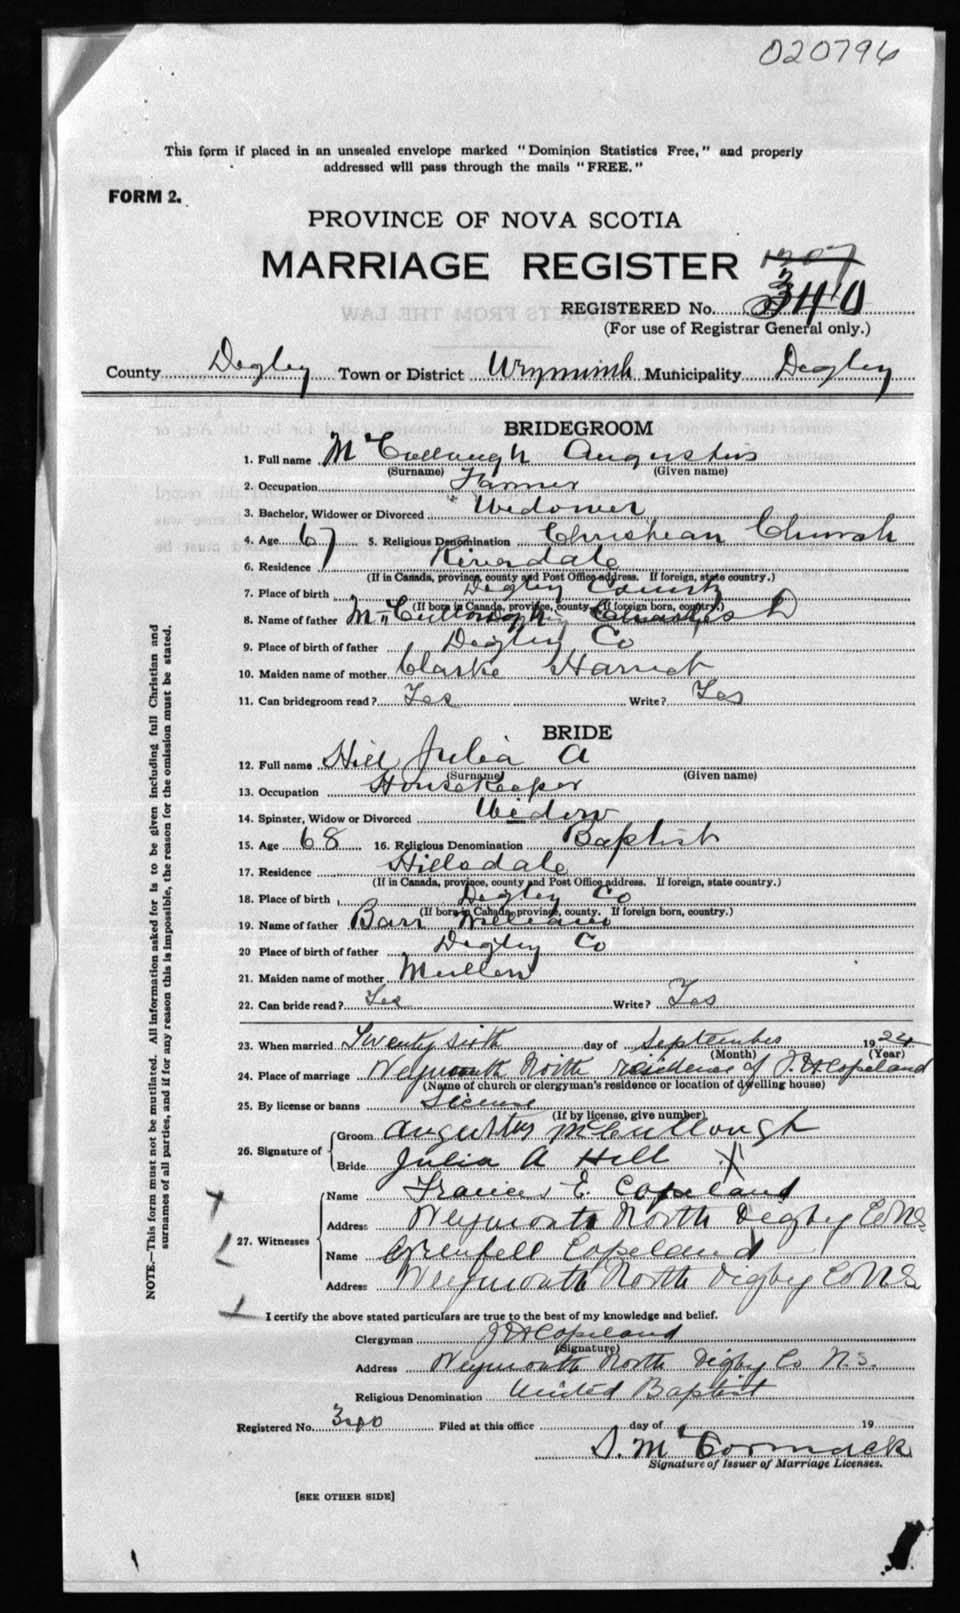 020796
This form if placed in an unsealed envelope marked "Dominion Statistics Free," and properly
addressed will pass through the mails "FREE."
FORM 2.
PROVINCE OF NOVA SCOTIA
MARRIAGE REGISTER 1207
REGISTERED No. 340
(For use of Registrar General only.)
County Digby Town or District Weymouth Municipality Digby
BRIDEGROOM
1. Full name McCullough Augustus
(Surname) (Given name)
2. Occupation Farmer
3. Bachelor, Widower or Divorced Widower
4. Age 67 5. Religious Denomination Christian Church
6. Residence Riverdale
(If in Canada, province, county and Post Office address. If foreign, state country.)
7. Place of birth Digby County
(If born in Canada, province, county. If foreign born, country.)
8. Name of father McCullough Charles D
9. Place of birth of father Digby Co
10. Maiden name of mother Clarke Harriet
11. Can bridegroom read? Yes Write? Yes
BRIDE
12. Full name Hill Julia A
(Surname) (Given name)
13. Occupation Housekeeper
14. Spinster, Widow or Divorced Widow
15. Age 68 16. Religious Denomination Baptist
17. Residence Hillsdale
(If in Canada, province, county and Post Office address. If foreign, state country.)
18. Place of birth Digby Co
(If born in Canada, province, county. If foreign born, country.)
19. Name of father Barr William
20 Place of birth of father Digby Co
21. Maiden name of mother Mullen
22. Can bride read? Yes Write? Yes
23. When married Twenty sixth day of September 1924
(Month) (Year)
24. Place of marriage Weymouth North residence of J. H Copeland
(Name of church or clergyman's residence or location of dwelling house)
25. By license or banns License
(If by license, give number)
26. Signature of Groom Augustus McCullough
Bride Julia A Hill X
27. Witnesses Name Frances E. Copeland
Address Weymouth North Digby Co N.S.
Name Grenfell Copeland
Address Weymouth North Digby Co N S
I certify the above stated particulars are true to the best of my knowledge and belief.
Clergyman J H Copeland
(Signature)
Address Weymouth North Digby Co N.S.
Religious Denomination United Baptist
Registered No. 340 Filed at this office day of 19
S. McCormack
Signature of Issuer of Marriage Licenses.
[SEE OTHER SIDE]
NOTE.—This form must not be mutilated. All information asked for is to be given including full Christian and
surnames of all parties, and if for any reason this is impossible, the reason for the omission must be stated.